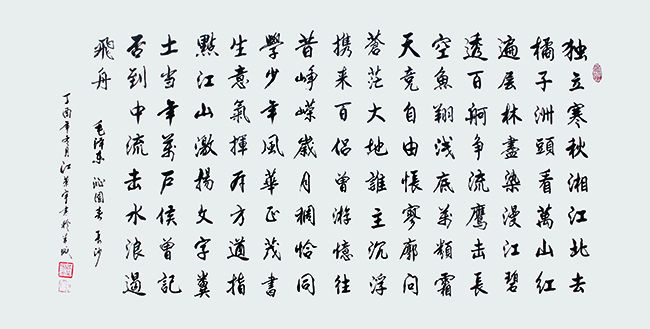 独立寒秋湘江北去
橘子洲頭看萬山紅
遍层林盡染漫江碧
透百舸争流鷹击長
空魚翔浅底萬類霜
天竞自由悵寥廓问
蒼茫大地誰主沉浮
携来百侣曾游憶往
昔峥嵘歲月稠恰同
學少年風華正茂書
生意氣揮斥方遒指
點江山激揚文字糞
土当年萬户侯曾記
否到中流击水浪遏
飛舟
毛泽东 沁園春 長沙
丁酉年 月江